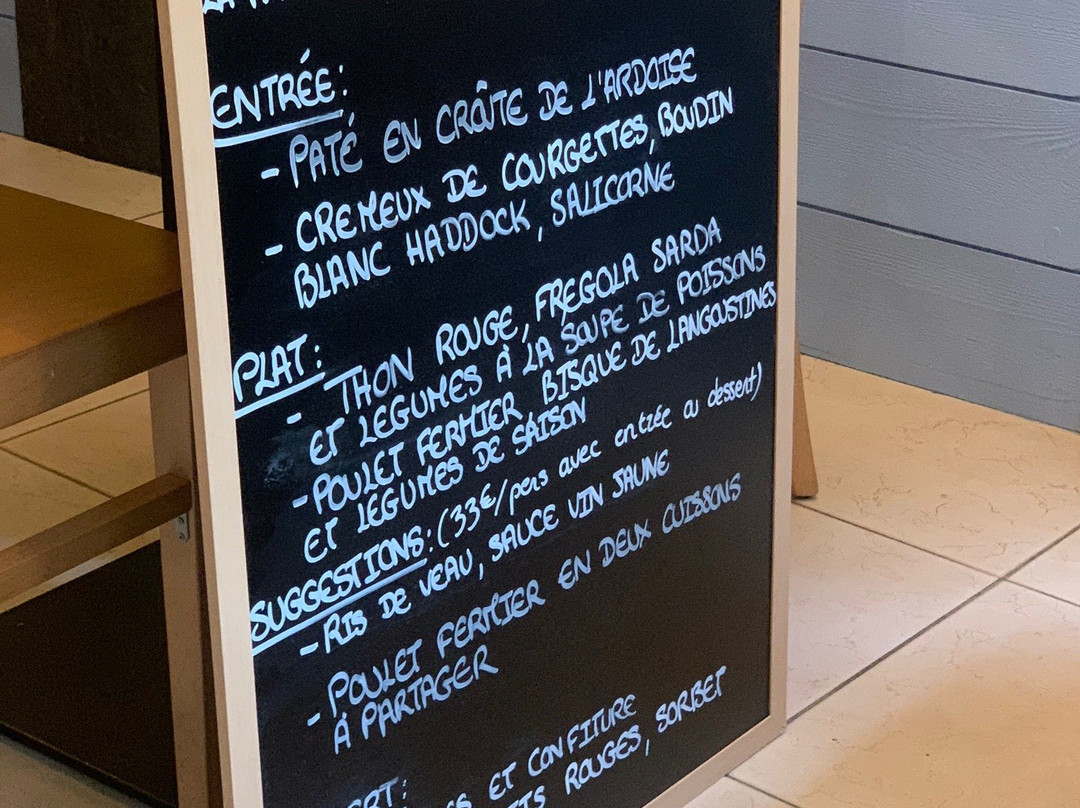 ENTRÉE:
- PATÉ EN CROÛTE DE L'ARDOISE
- CREMEUX DE COURGETTES, BOUDIN
BLANC HADDOCK, SALICORNE
PLAT:
- THON ROUGE, FREGOLA SARDA
ET LEGUMES À LA SOUPE DE POISSONS
- POULET FERMIER BISQUE DE LANGOUSTINES
ET LÉGUMES DE SAISON
SUGGESTIONS: (33€/pers avec entrée ou dessert)
- RIS DE VEAU, SAUCE VIN JAUNE
- POULET FERMIER EN DEUX CUISSONS
À PARTAGER
ET CONFITURE
ROUGES, SORBET